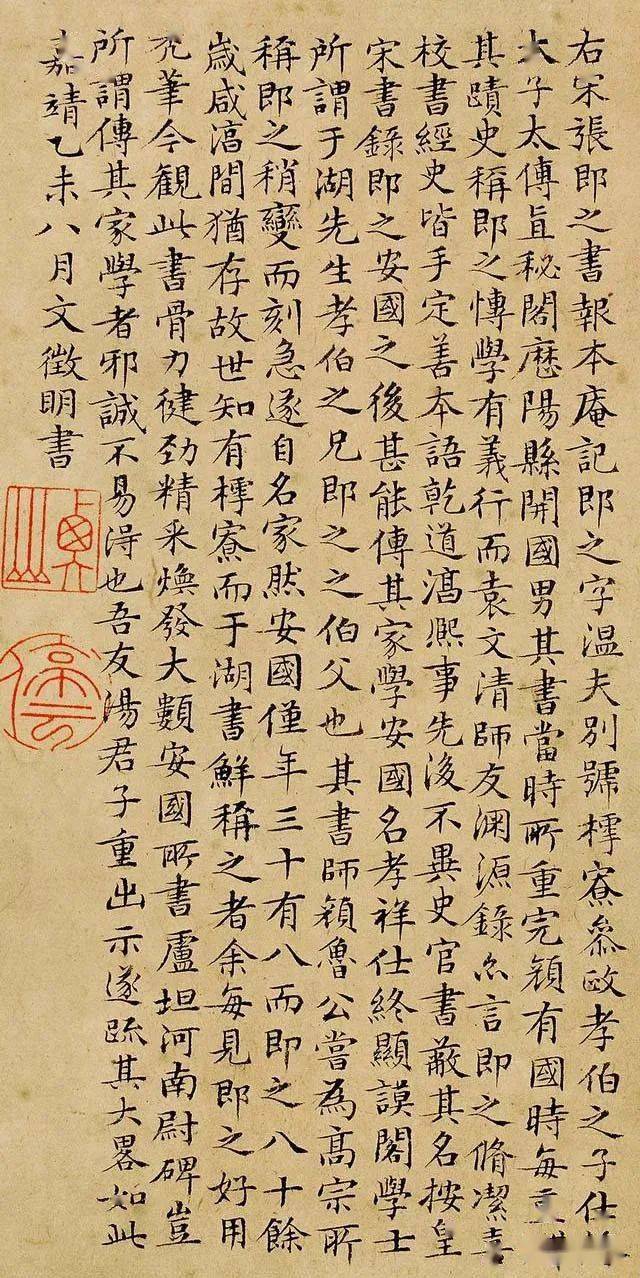 右宋張即之書報本庵記即之字溫夫別號樗寮叅政孝伯之子仕
太子太傅直秘閣歷陽縣開國男其書當時所重完顏有國時每重
其蹟史稱即之博學有義行而袁文清師友淵源錄亦言即之脩潔喜
校書經史皆手定善本語乾道淳熙事先後不異史官書蔽其名按皇
宋書錄即之安國之後甚能傳其家學安國名孝祥仕終顯謨閣學士
所謂于湖先生孝伯之兄即之之伯父也其書師顏魯公嘗為高宗所
稱即之稍變而刻急遂自名家然安國僅年三十有八而即之八十餘
歲咸淳間猶存故世知有樗寮而于湖書鮮稱之者余每見即之好用
禿筆今觀此書骨力健勁精采煥發大類安國所書盧坦河南尉碑豈
所謂傳其家學者邪誠不易得也吾友湯君子重出示遂疏其大畧如此
嘉靖乙未八月文徵明書
停雲